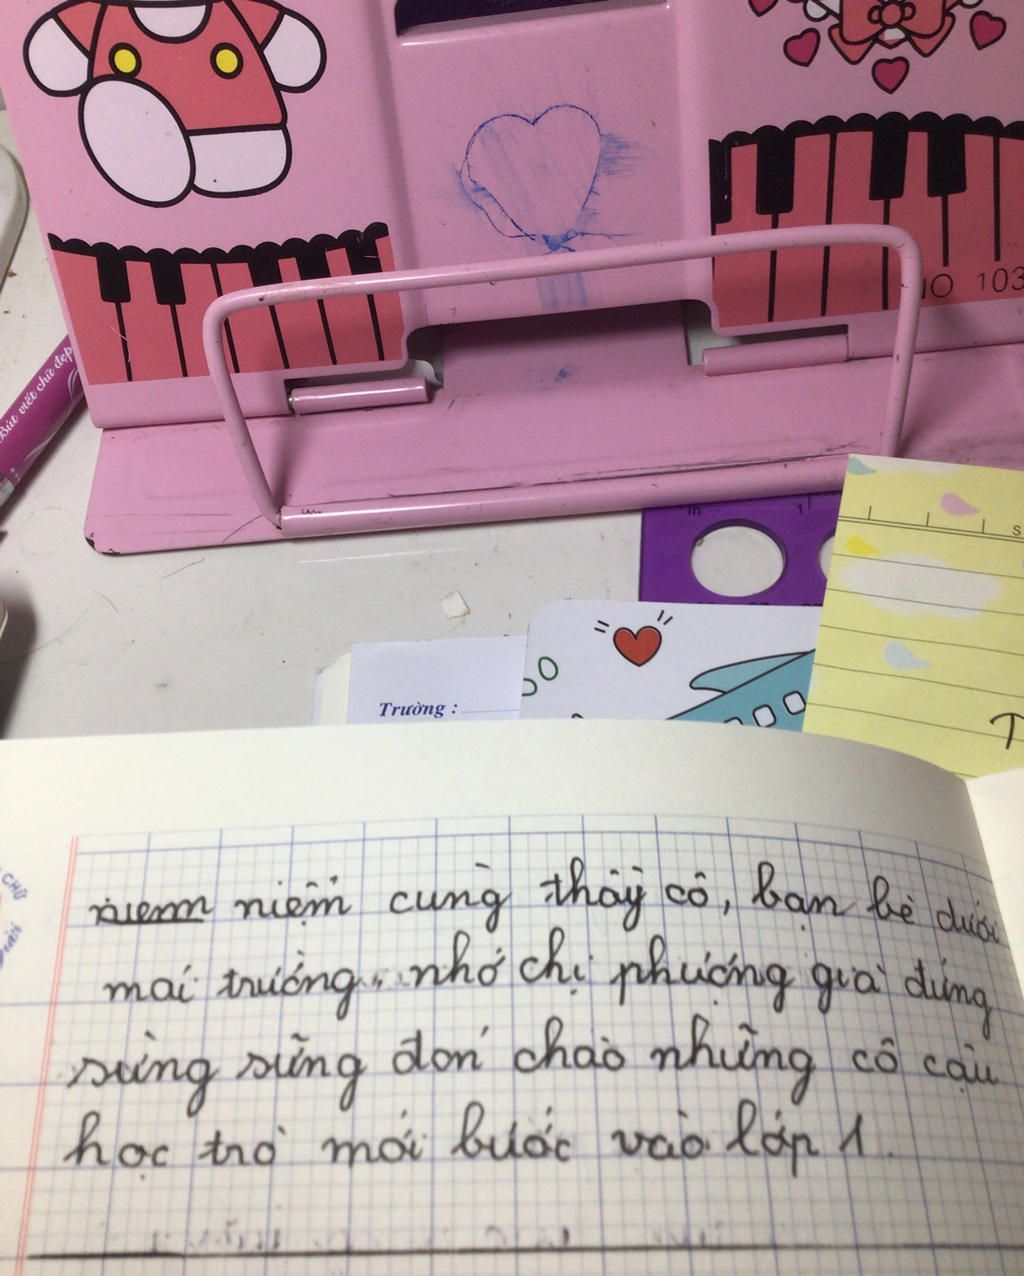 NO 103
Bút viết chữ đẹp
in 1
S
Trường :
T
CHỮ
niệm cùng thầy cô, bạn bè dưới
mái trường, nhớ chị phượng già đứng
sừng sững đón chào những cô cậu
học trò mới bước vào lớp 1.